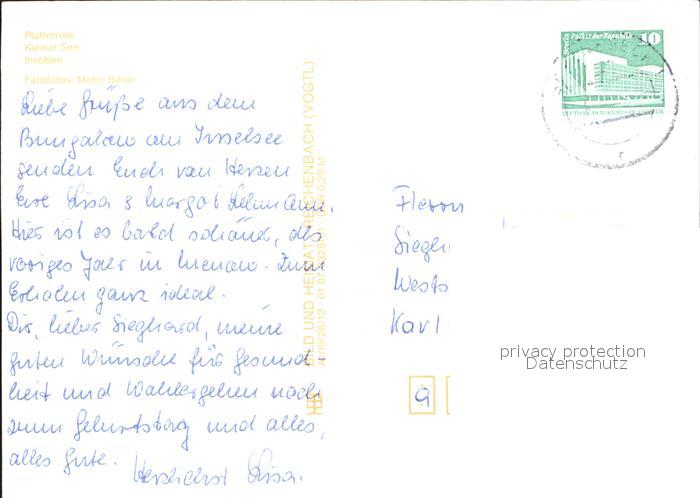 Plattensee
Kleiner See
Inselsee
Farbfotos: Mohr, Berlin
Liebe Grüße aus dem
Bungalow am Inselsee
senden Euch von Herzen
Eure Lisa & Margot Lehmann.
Hier ist es bald schöner, als
voriges Jahr in Ilmenau. Zum
Erholen ganz ideal.
Dir, lieber Sieghard, meine
guten Wünsche für Gesund-
heit und Wohlergehen nach
zum Geburtstag und alles,
alles Gute.
Herzlichst Lisa.
BILD UND HEIMAT REICHENBACH (VOGTL)
A1/III/26/13 01 07
0,20 M
Berlin Palast der Republik 10
DEUTSCHE DEMOKRATISCHE REPUBLIK
Sieg
Karl
privacy protection
Datenschutz